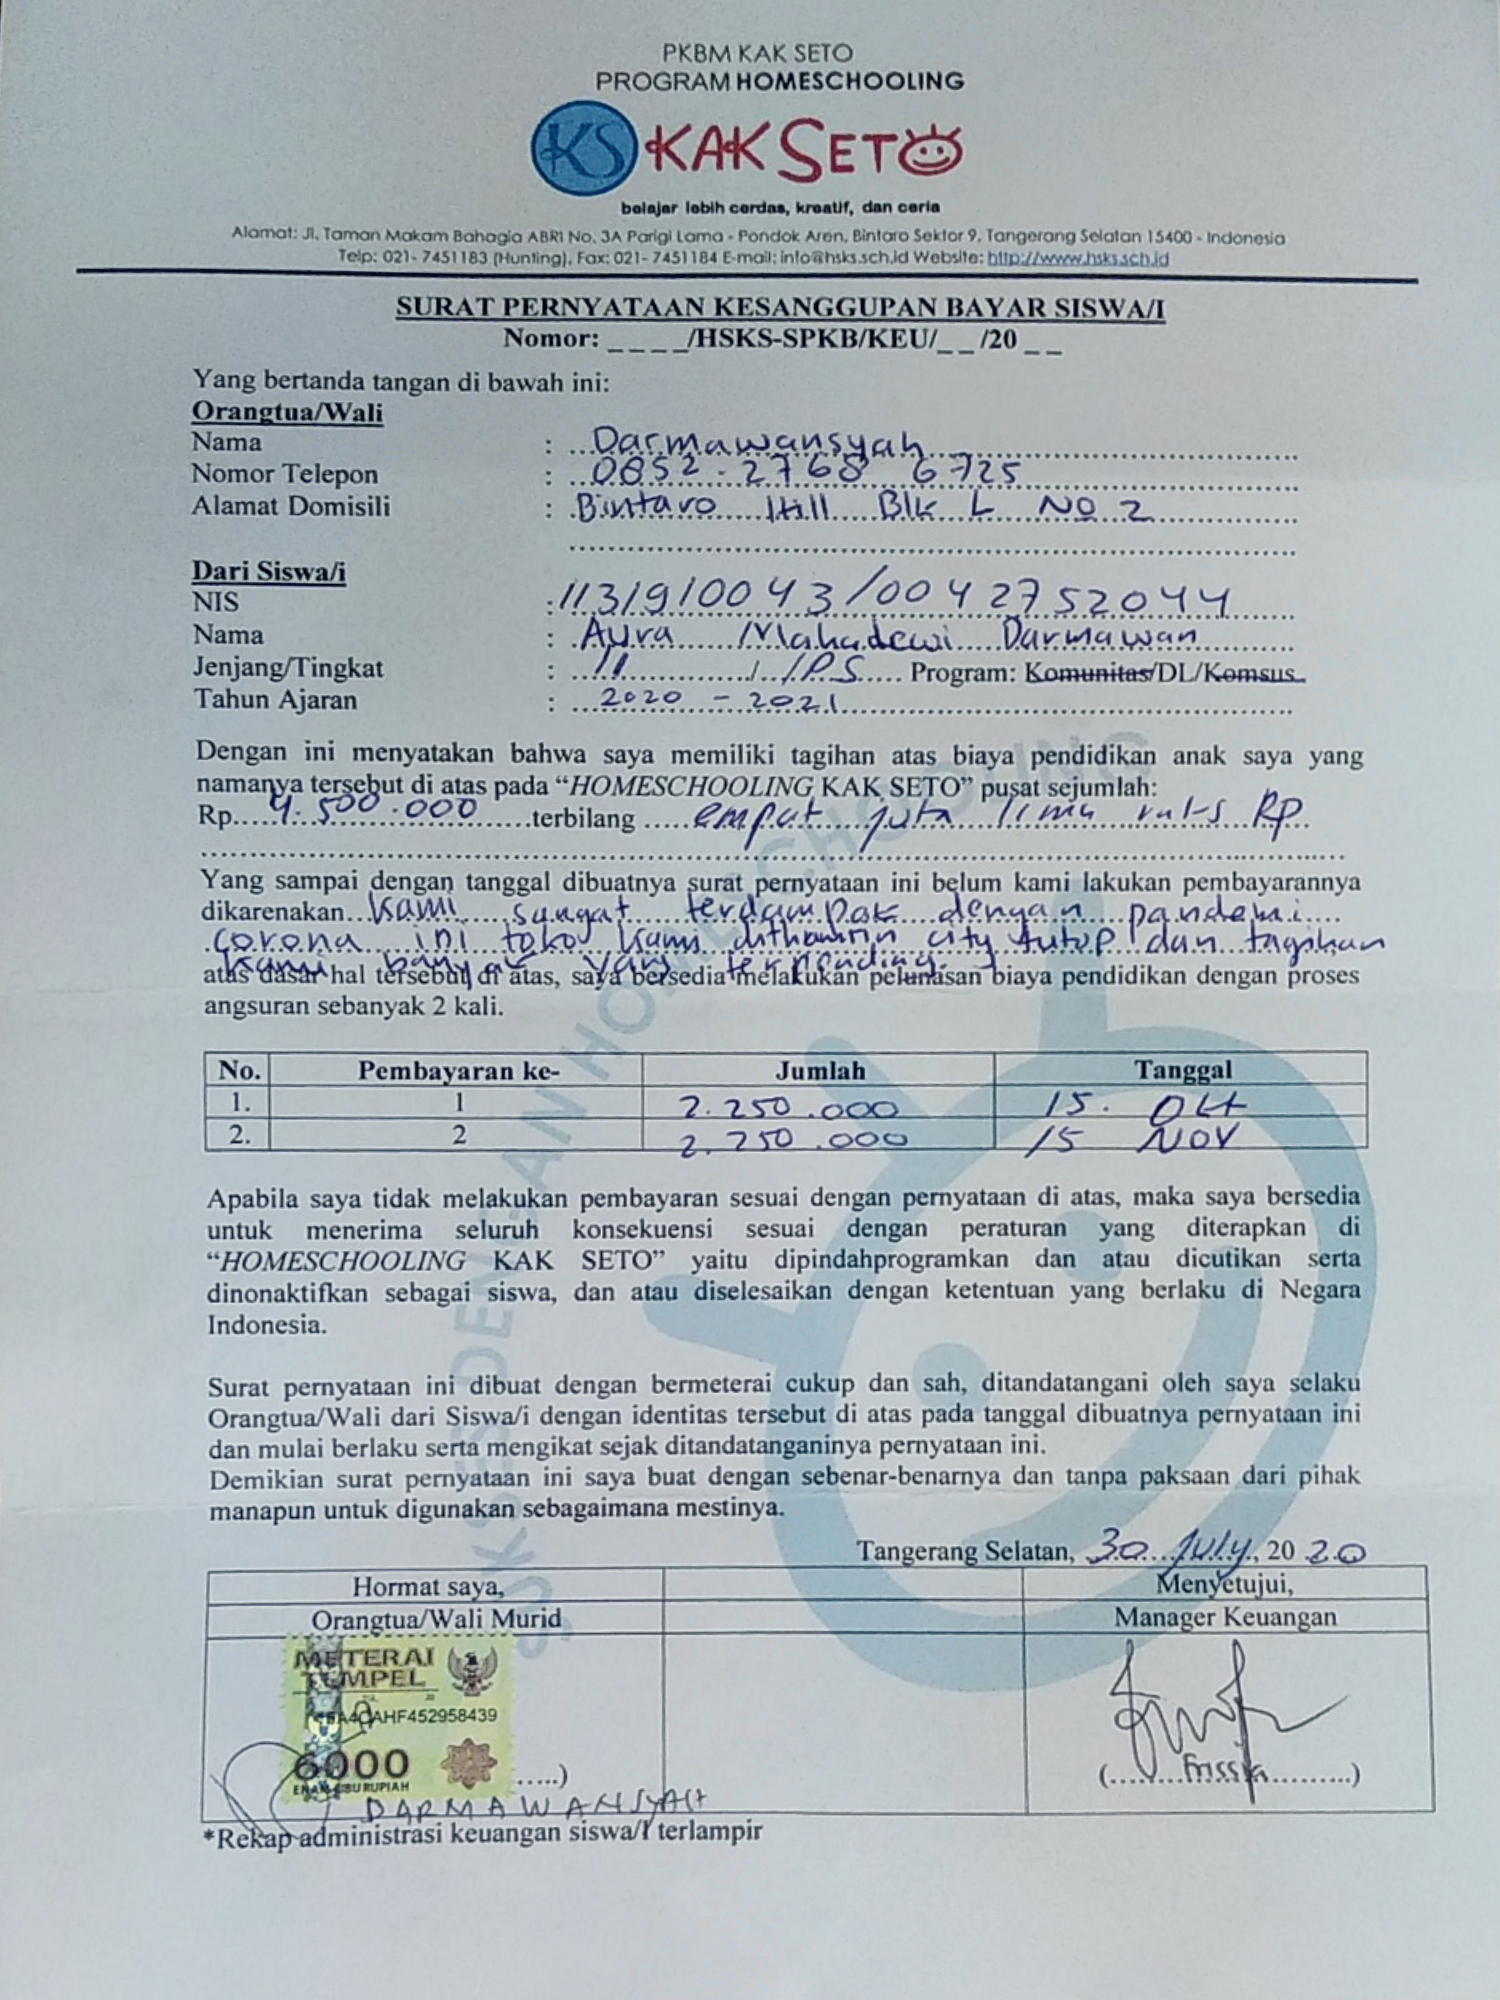 PKBM KAK SETO
PROGRAM HOMESCHOOLING
KS KAK SETO
belajar lebih cerdas, kreatif, dan ceria
Alamat: Jl. Taman Makam Bahagia ABRI No. 3A Parigi Lama - Pondok Aren, Bintaro Sektor 9, Tangerang Selatan 15400 - Indonesia
Telp: 021- 7451183 (Hunting), Fax: 021- 7451184 E-mail: info@hsks.sch.id Website: http://www.hsks.sch.id
SURAT PERNYATAAN KESANGGUPAN BAYAR SISWA/I
Nomor: _ _ _ _/HSKS-SPKB/KEU/_ _ /20 _ _
Yang bertanda tangan di bawah ini:
Orangtua/Wali
Nama : Darmawansyah
Nomor Telepon : 0852-2768 6725
Alamat Domisili : Bintaro Hill Blk L No 2
Dari Siswa/i
NIS : 113/910043/0042752044
Nama : Aura Mahadewi Darmawan
Jenjang/Tingkat : 11 / IPS Program: Komunitas/DL/Komsus
Tahun Ajaran : 2020 - 2021
Dengan ini menyatakan bahwa saya memiliki tagihan atas biaya pendidikan anak saya yang
namanya tersebut di atas pada “HOMESCHOOLING KAK SETO” pusat sejumlah:
Rp. 4.500.000 terbilang empat juta lima Rp
Yang sampai dengan tanggal dibuatnya surat pernyataan ini belum kami lakukan pembayarannya
dikarenakan kami sangat terdampak dengan pandemi
corona ini toko kami dithamrin city tutup dan tagihan
kami banyak yang terpending.
atas dasar hal tersebut di atas, saya bersedia melakukan pelunasan biaya pendidikan dengan proses
angsuran sebanyak 2 kali.
No. Pembayaran ke- Jumlah Tanggal
1. 1 2.250.000 15. Okt
2. 2 2.250.000 15 NOV
Apabila saya tidak melakukan pembayaran sesuai dengan pernyataan di atas, maka saya bersedia
untuk menerima seluruh konsekuensi sesuai dengan peraturan yang diterapkan di
“HOMESCHOOLING KAK SETO” yaitu dipindahprogramkan dan atau dicutikan serta
dinonaktifkan sebagai siswa, dan atau diselesaikan dengan ketentuan yang berlaku di Negara
Indonesia.
Surat pernyataan ini dibuat dengan bermeterai cukup dan sah, ditandatangani oleh saya selaku
Orangtua/Wali dari Siswa/i dengan identitas tersebut di atas pada tanggal dibuatnya pernyataan ini
dan mulai berlaku serta mengikat sejak ditandatanganinya pernyataan ini.
Demikian surat pernyataan ini saya buat dengan sebenar-benarnya dan tanpa paksaan dari pihak
manapun untuk digunakan sebagaimana mestinya.
Tangerang Selatan, 30 July, 2020
Hormat saya, Menyetujui,
Orangtua/Wali Murid Manager Keuangan
METERAI
TEMPEL
AHF452958439
6000
ENAM RIBU RUPIAH
DARMAWANSYAH
(Frissia)
*Rekap administrasi keuangan siswa/I terlampir